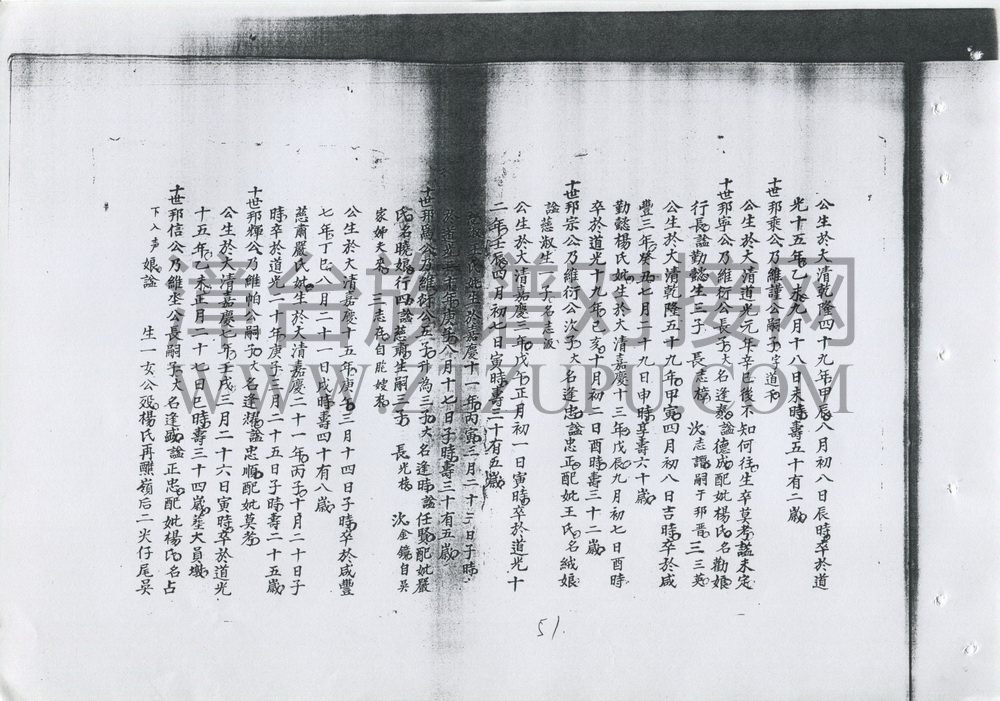 公生於大清乾隆四十九年甲辰八月初八日辰時卒於道
光十五年乙未九月十八日未時壽五十有二歲
十世邦乘公乃維謹公嗣子字道和
公生於大清道光元年辛巳後不知何往生卒莫考謚未定
十世邦寧公乃維衍公長子大名逢懃謚德成配妣楊氏名勸娘
行長謚勤懿生三子 長志樟 次志謂嗣于邦晋 三三英
公生於大清乾隆五十九年甲寅四月初八日吉時卒於咸
豐三年癸丑七月二十九日申時享壽六十歲
勤懿楊氏妣生於大清嘉慶十三年戊辰九月初七日酉時
卒於道光十九年己亥十月初二日酉時壽三十二歲
十世邦宗公乃維衍公次子大名逢忠謚忠正配妣王氏名絨娘
謚慈淑生一子名志
公生於大清嘉慶三年戊午正月初一日寅時卒於道光十
二年壬辰四月初七日寅時壽三十有五歲
氏妣生於嘉慶十一年丙寅三月二十二日子時
年庚 八月十七日子時壽三十有五歲
十世邦恩公乃維衍公五子升為三子大名逢時謚任賢配妣嚴
氏名曉娘行四謚慈肅生嗣三子 長光 次金鏡自吳
家 來 三志存自 嫂
公生於大清嘉慶十五年庚午三月十四日子時卒於咸豐
七年丁巳八月二十一日戌時壽四十有八歲
慈肅嚴氏妣生於大清嘉慶二十一年丙子十月二十日子
時卒於道光二十年庚子三月二十五日子時壽二十五歲
十世邦輝公乃維帕公嗣子大名逢耀謚忠順配妣莫考
公生於大清嘉慶七年壬戌三月二十六日寅時卒於道光
十五年乙未正月二十七日巳時壽三十四歲葬大員墩
十世邦信公乃維丞公長嗣子大名逢盛謚正忠配妣楊氏名占
娘謚 生一女公歿楊氏再醮嶺后二尖仔尾吳
下入声
51.
洋台族谱对接网
WWW.ZIZUPU.COM